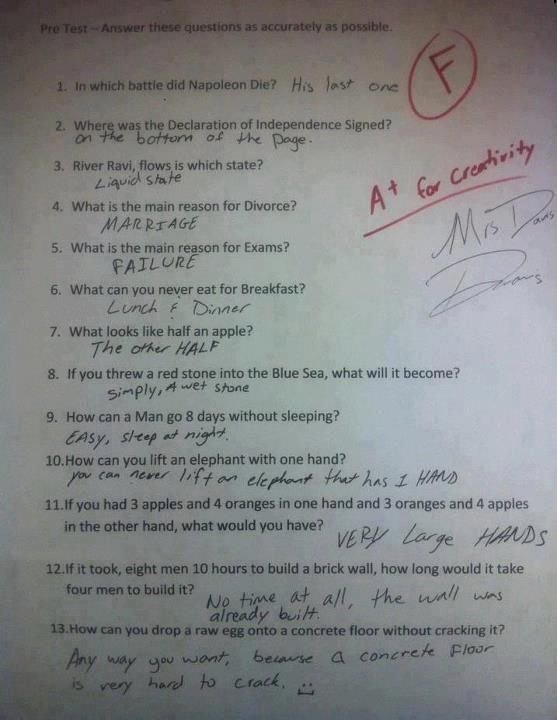 Pre Test – Answer these questions as accurately as possible.
F
1. In which battle did Napoleon Die? His last one
2. Where was the Declaration of Independence Signed?
on the bottom of the page.
A+ for Creativity
3. River Ravi, flows is which state?
Liquid state
4. What is the main reason for Divorce?
MARRIAGE
Mrs Davis
5. What is the main reason for Exams?
FAILURE
6. What can you never eat for Breakfast?
Lunch & Dinner
7. What looks like half an apple?
The other HALF
8. If you threw a red stone into the Blue Sea, what will it become?
simply, A wet stone
9. How can a Man go 8 days without sleeping?
EASY, sleep at night.
10.How can you lift an elephant with one hand?
you can never lift an elephant that has 1 HAND
11.If you had 3 apples and 4 oranges in one hand and 3 oranges and 4 apples
in the other hand, what would you have? VERY Large HANDS
12.If it took, eight men 10 hours to build a brick wall, how long would it take
four men to build it? No time at all, the wall was
already built.
13.How can you drop a raw egg onto a concrete floor without cracking it?
Any way you want, because a concrete Floor
is very hard to crack.